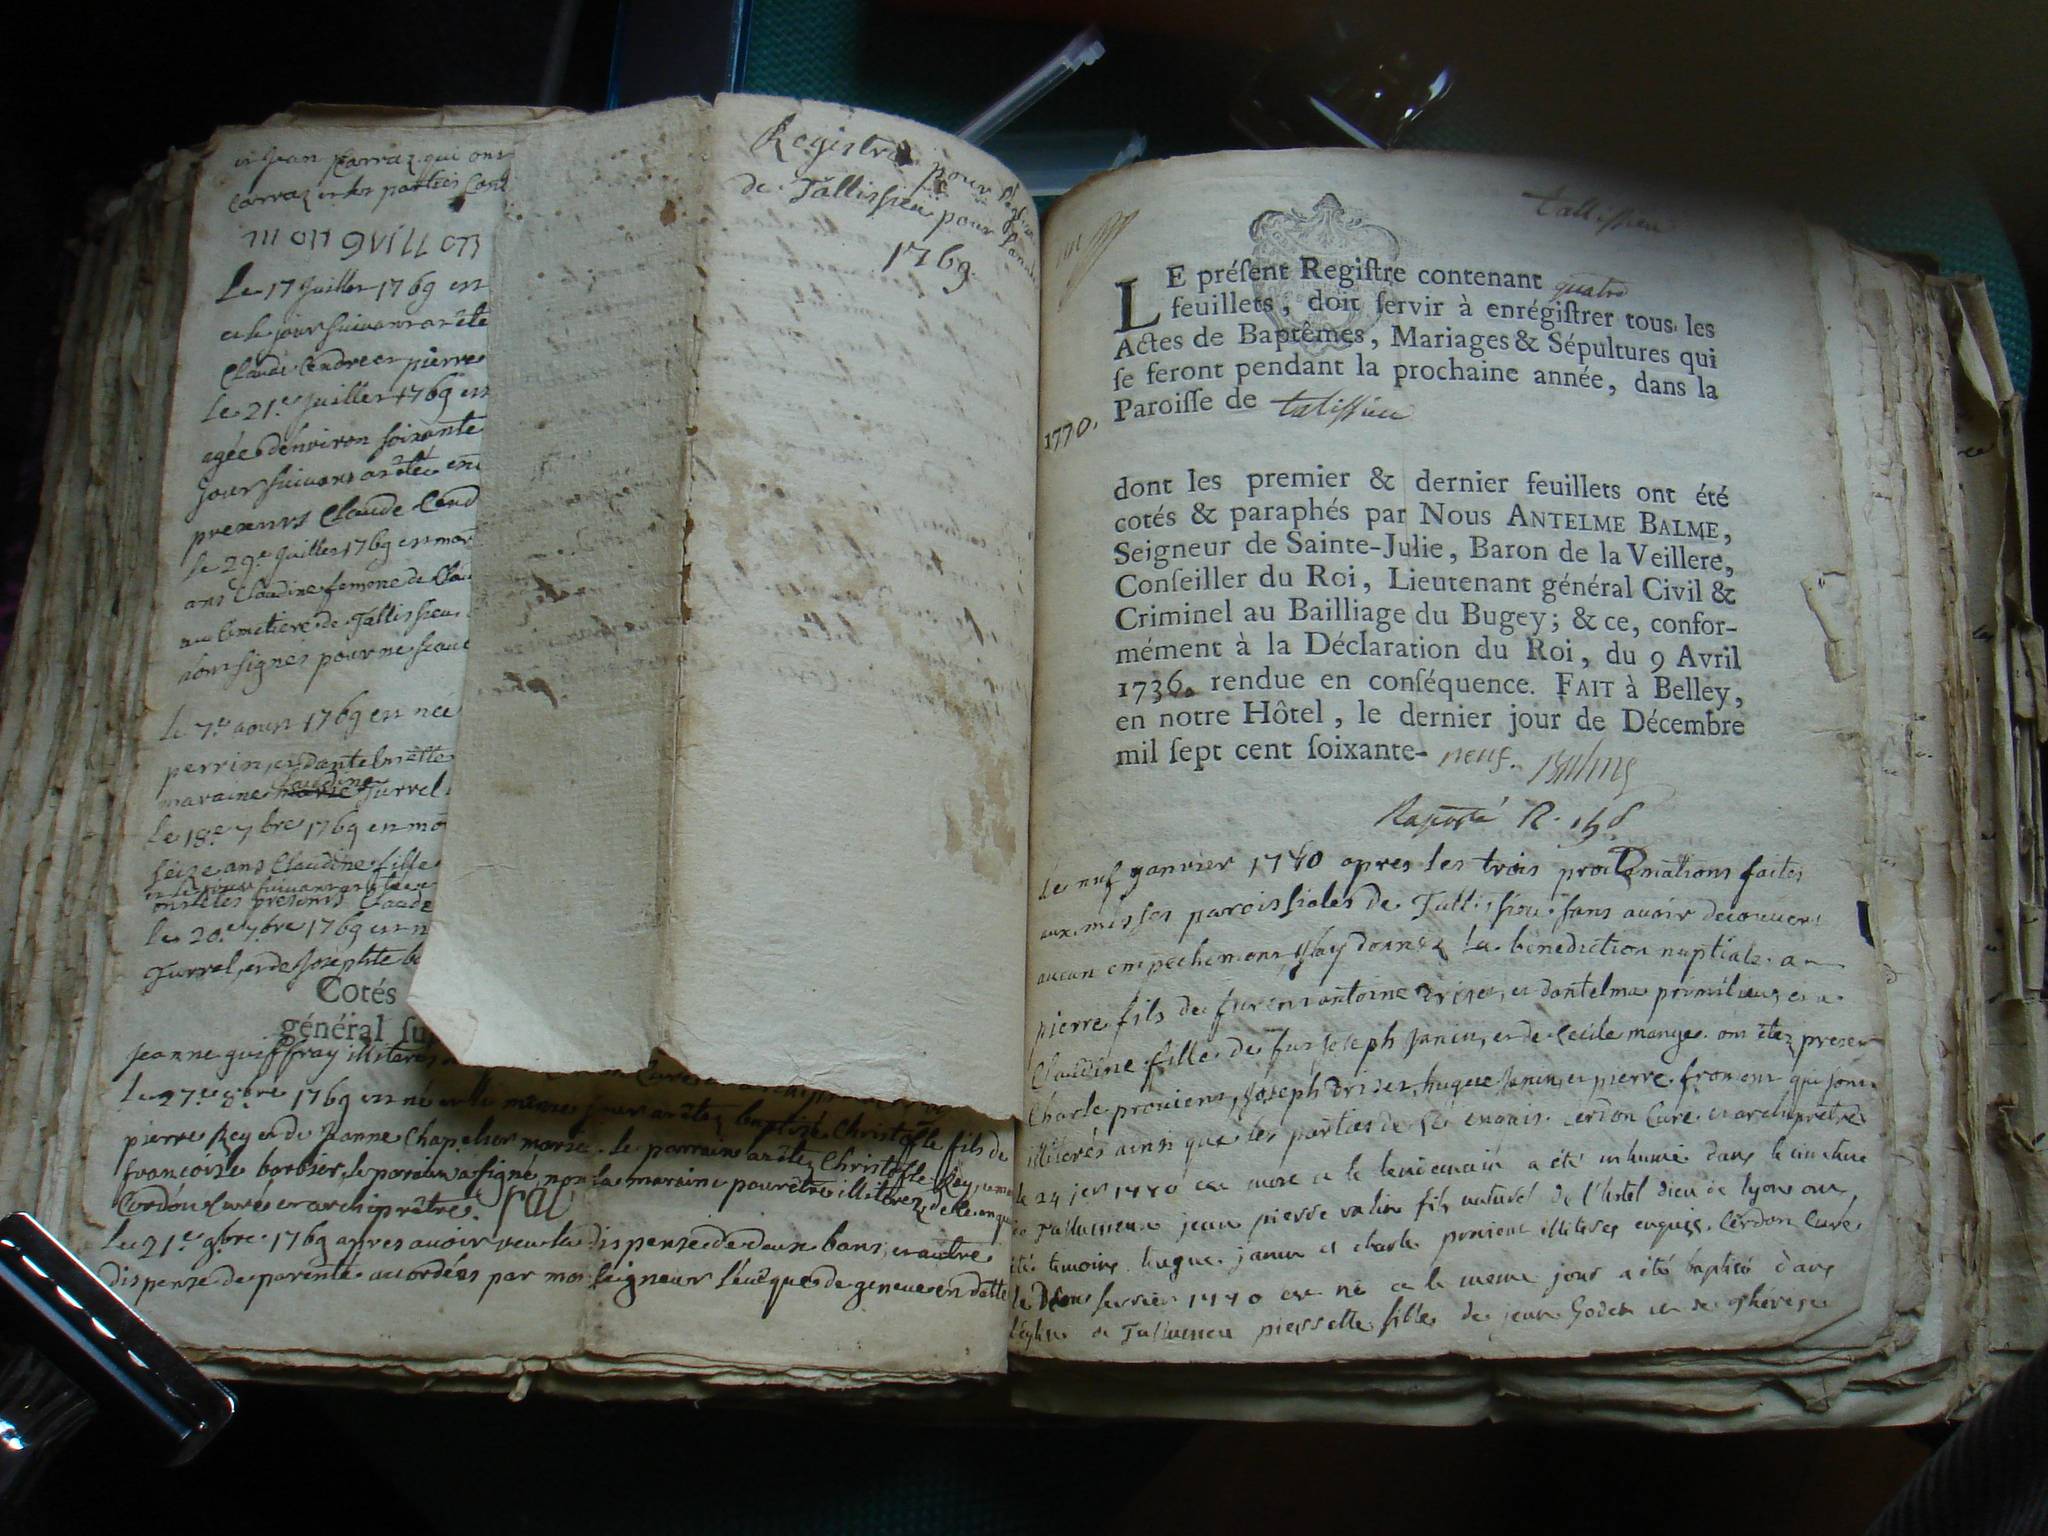 et Jean Carraz qui ont
Carraz et les parties
MONGVILLON
Le 17 Juillet 1769 est
et le jour suivant a été
Claude Cendre et pierre
Le 21e Juillet 1769 est
agée d'environ soixante
jour suivant a été
presents Claude Cend
le 29e Juillet 1769 est mor
ans Claudine femme de
au cimetiere de Tallissieu
son signes pour ne
Le 7e aoust 1769 est née
perrin, et d'antelmette
maraine Claudine Turrel
Le 18e 7bre 1769 est mo
seize ans Claudine fille
presents Claude
Le 20e 7bre 1769 est n
Turrel, et de Josephte
Cotés
général
Jeanne guiffray illiteres
Le 27e 8bre 1769 est né et le meme jour a été baptisé Christofle fils de
pierre Rey et de Jeanne Chapelu le parrain a été Christofle Rey
françoise barbier le parrain a signé, non la maraine pour être illiterez de ce enquis
Cerdon Curé et archiprêtre. Rey
Le 21e 9bre 1769 apres avoir veu la dispense de deux bans, et autre
dispense de parenté accordées par mon seigneur l'evêque de geneve en datte
Registre pour
de Tallissieu pour l'année
1769
tallissieu
LE préſent Regiſtre contenant quatre
feuillets, doit ſervir à enrégiſtrer tous les
Actes de Baptêmes, Mariages & Sépultures qui
ſe feront pendant la prochaine année, dans la
Paroiſſe de talissieu
1770.
dont les premier & dernier feuillets ont été
cotés & paraphés par Nous ANTELME BALME,
Seigneur de Sainte-Julie, Baron de la Veillere,
Conſeiller du Roi, Lieutenant général Civil &
Criminel au Bailliage du Bugey; & ce, confor-
mément à la Déclaration du Roi, du 9 Avril
1736. rendue en conſéquence. FAIT à Belley,
en notre Hôtel, le dernier jour de Décembre
mil ſept cent ſoixante- neuf. Balme
Le nuf janvier 1770 apres les trois proclamations faites
aux messes paroissiales de Tallissieu sans avoir decouvert
aucun empechement j'ay donnez la benediction nuptiale a
pierre fils de furent antoine et d'antelma et a
Claudine fille de fut Joseph Janin, et de Cecile mange. ont étez present
Charle provient, Joseph hugue Janin, et pierre froment qui sont
illiterés ainsi que les parties de ce enquis. Cerdon Curé et archiprêtre
le 24 jer 1770 est mort et le lendemain a été inhumé dans le cimetiere
de Tallissieu jean pierre valin fils naturel de l'hotel dieu de lyon ont
été temoins hugue janin et charle provient illiteres enquis. Cerdon Curé
le fevrier 1770 est né et le meme jour a été baptisé dans
l'église de Tallissieu pierrette fille de jean Godet et de thérèse